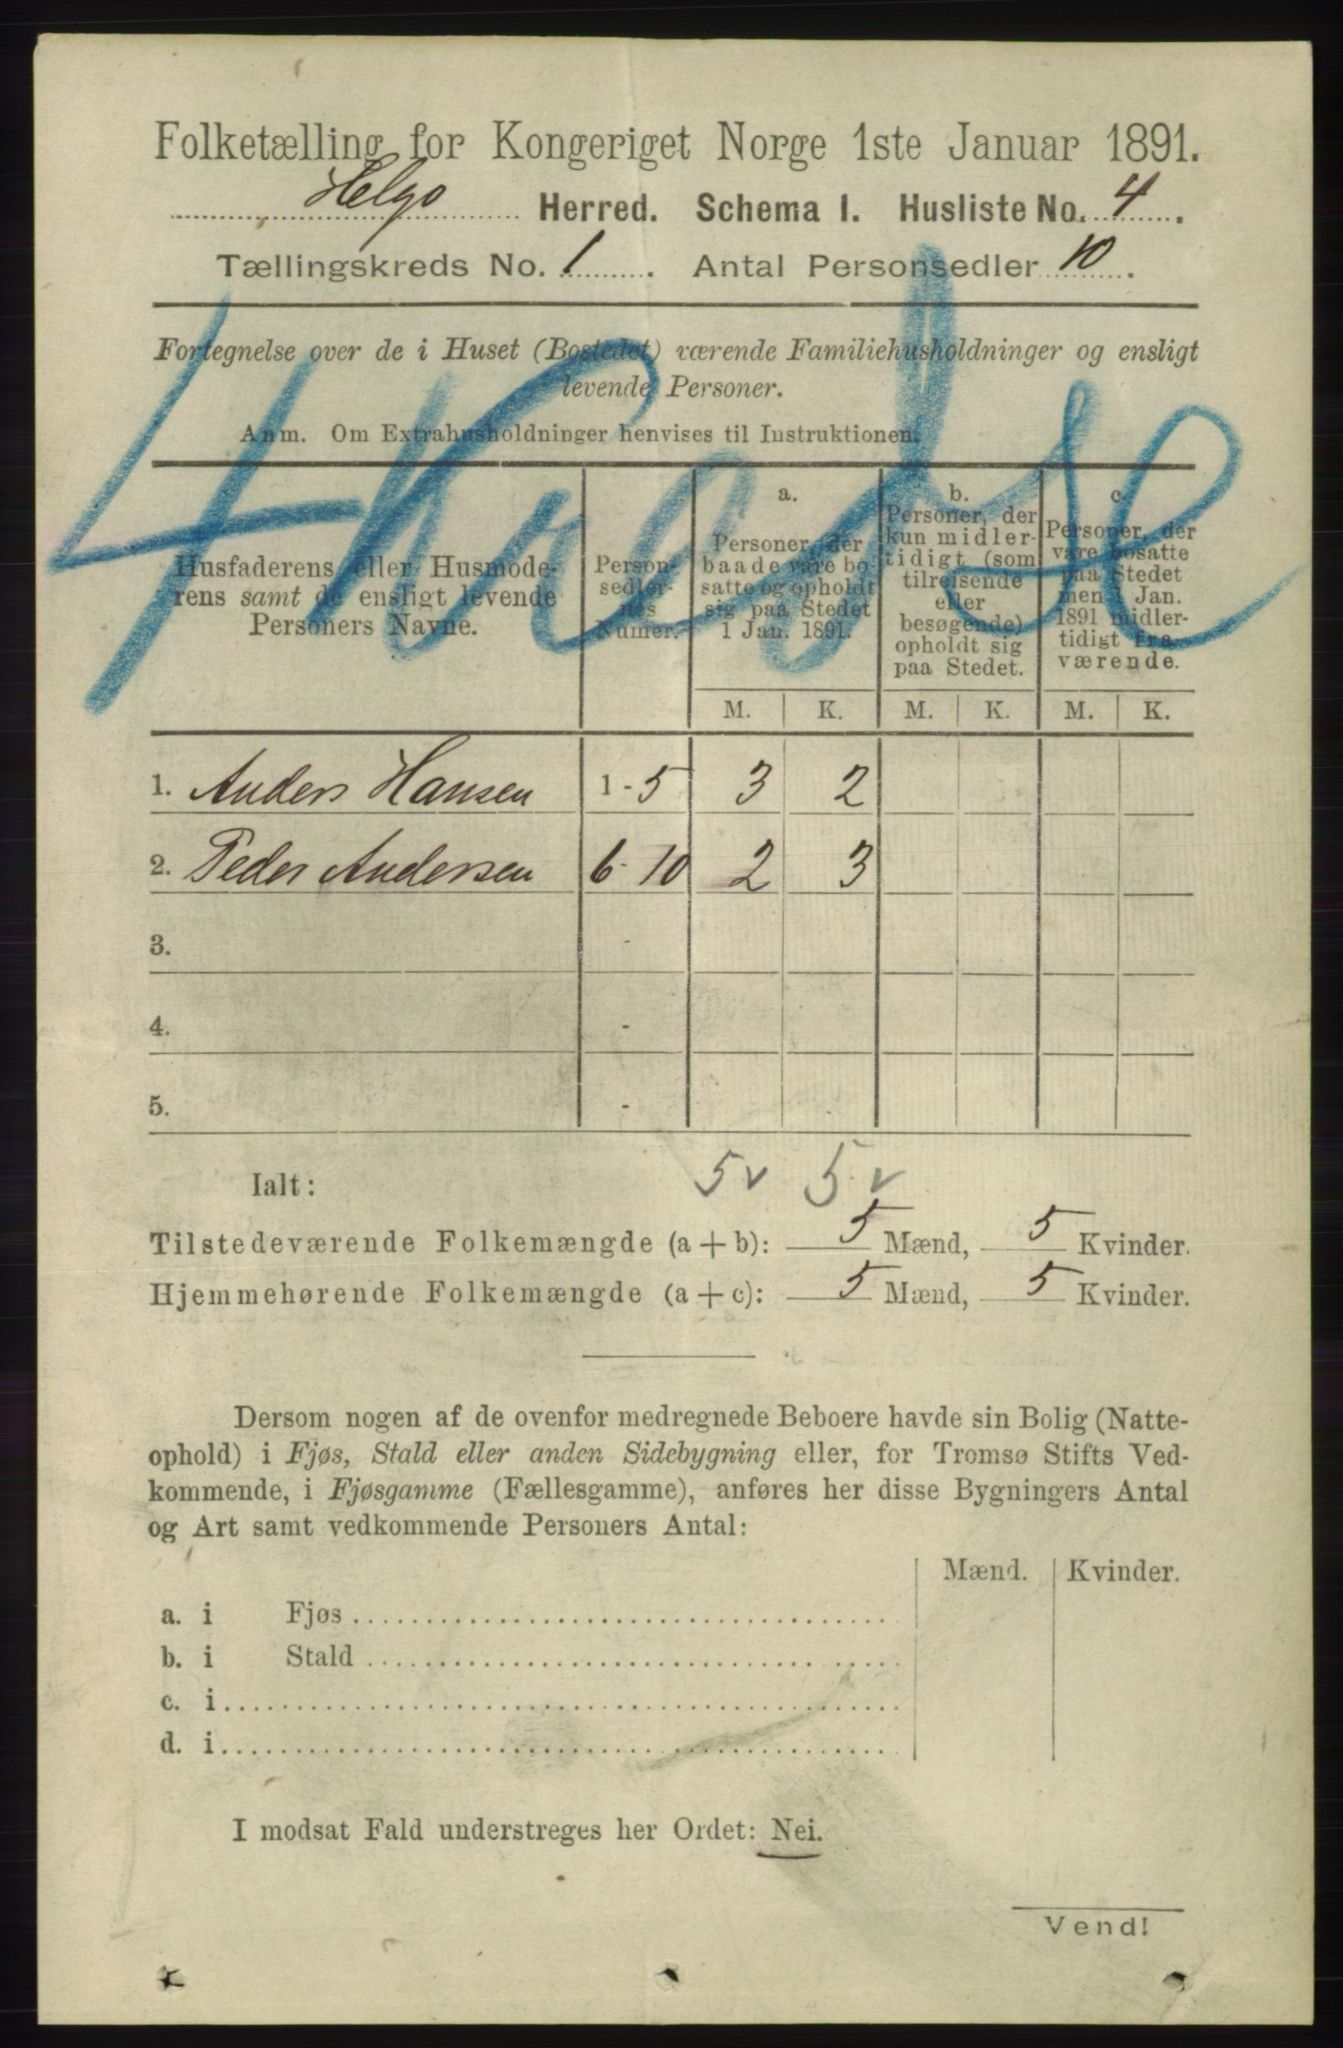 Folketælling for Kongeriget Norge 1ste Januar 1891.
Helgø Herred. Schema I. Husliste No. 4.
Tællingskreds No. 1. Antal Personsedler 10.
Fortegnelse over de i Huset (Bostedet) værende Familiehusholdninger og ensligt
levende Personer.
Anm. Om Extrahusholdninger henvises til Instruktionen.
4 Kredse
Husfaderens eller Husmode-
rens samt de ensligt levende
Personers Navne.
Person-
sedler-
nes
Numer.
a.
Personer, der
baade vare bo-
satte og opholdt
sig paa Stedet
1 Jan. 1891.
b.
Personer, der
kun midler-
tidigt (som
tilreisende
eller
besøgende)
opholdt sig
paa Stedet.
c.
Personer, der
vare bosatte
paa Stedet
men 1 Jan.
1891 midler-
tidigt fra-
værende.
M. K. M. K. M. K.
1. Anders Hansen 1 - 5 3 2
2. Peder Andersen 6 - 10 2 3
3. -
4. -
5. -
Ialt: 5 v 5 v
Tilstedeværende Folkemængde (a + b): 5 Mænd, 5 Kvinder.
Hjemmehørende Folkemængde (a + c): 5 Mænd, 5 Kvinder.
Dersom nogen af de ovenfor medregnede Beboere havde sin Bolig (Natte-
ophold) i Fjøs, Stald eller anden Sidebygning eller, for Tromsø Stifts Ved-
kommende, i Fjøsgamme (Fællesgamme), anføres her disse Bygningers Antal
og Art samt vedkommende Personers Antal:
Mænd. Kvinder.
a. i Fjøs
b. i Stald
c. i
d. i
I modsat Fald understreges her Ordet: Nei.
Vend!